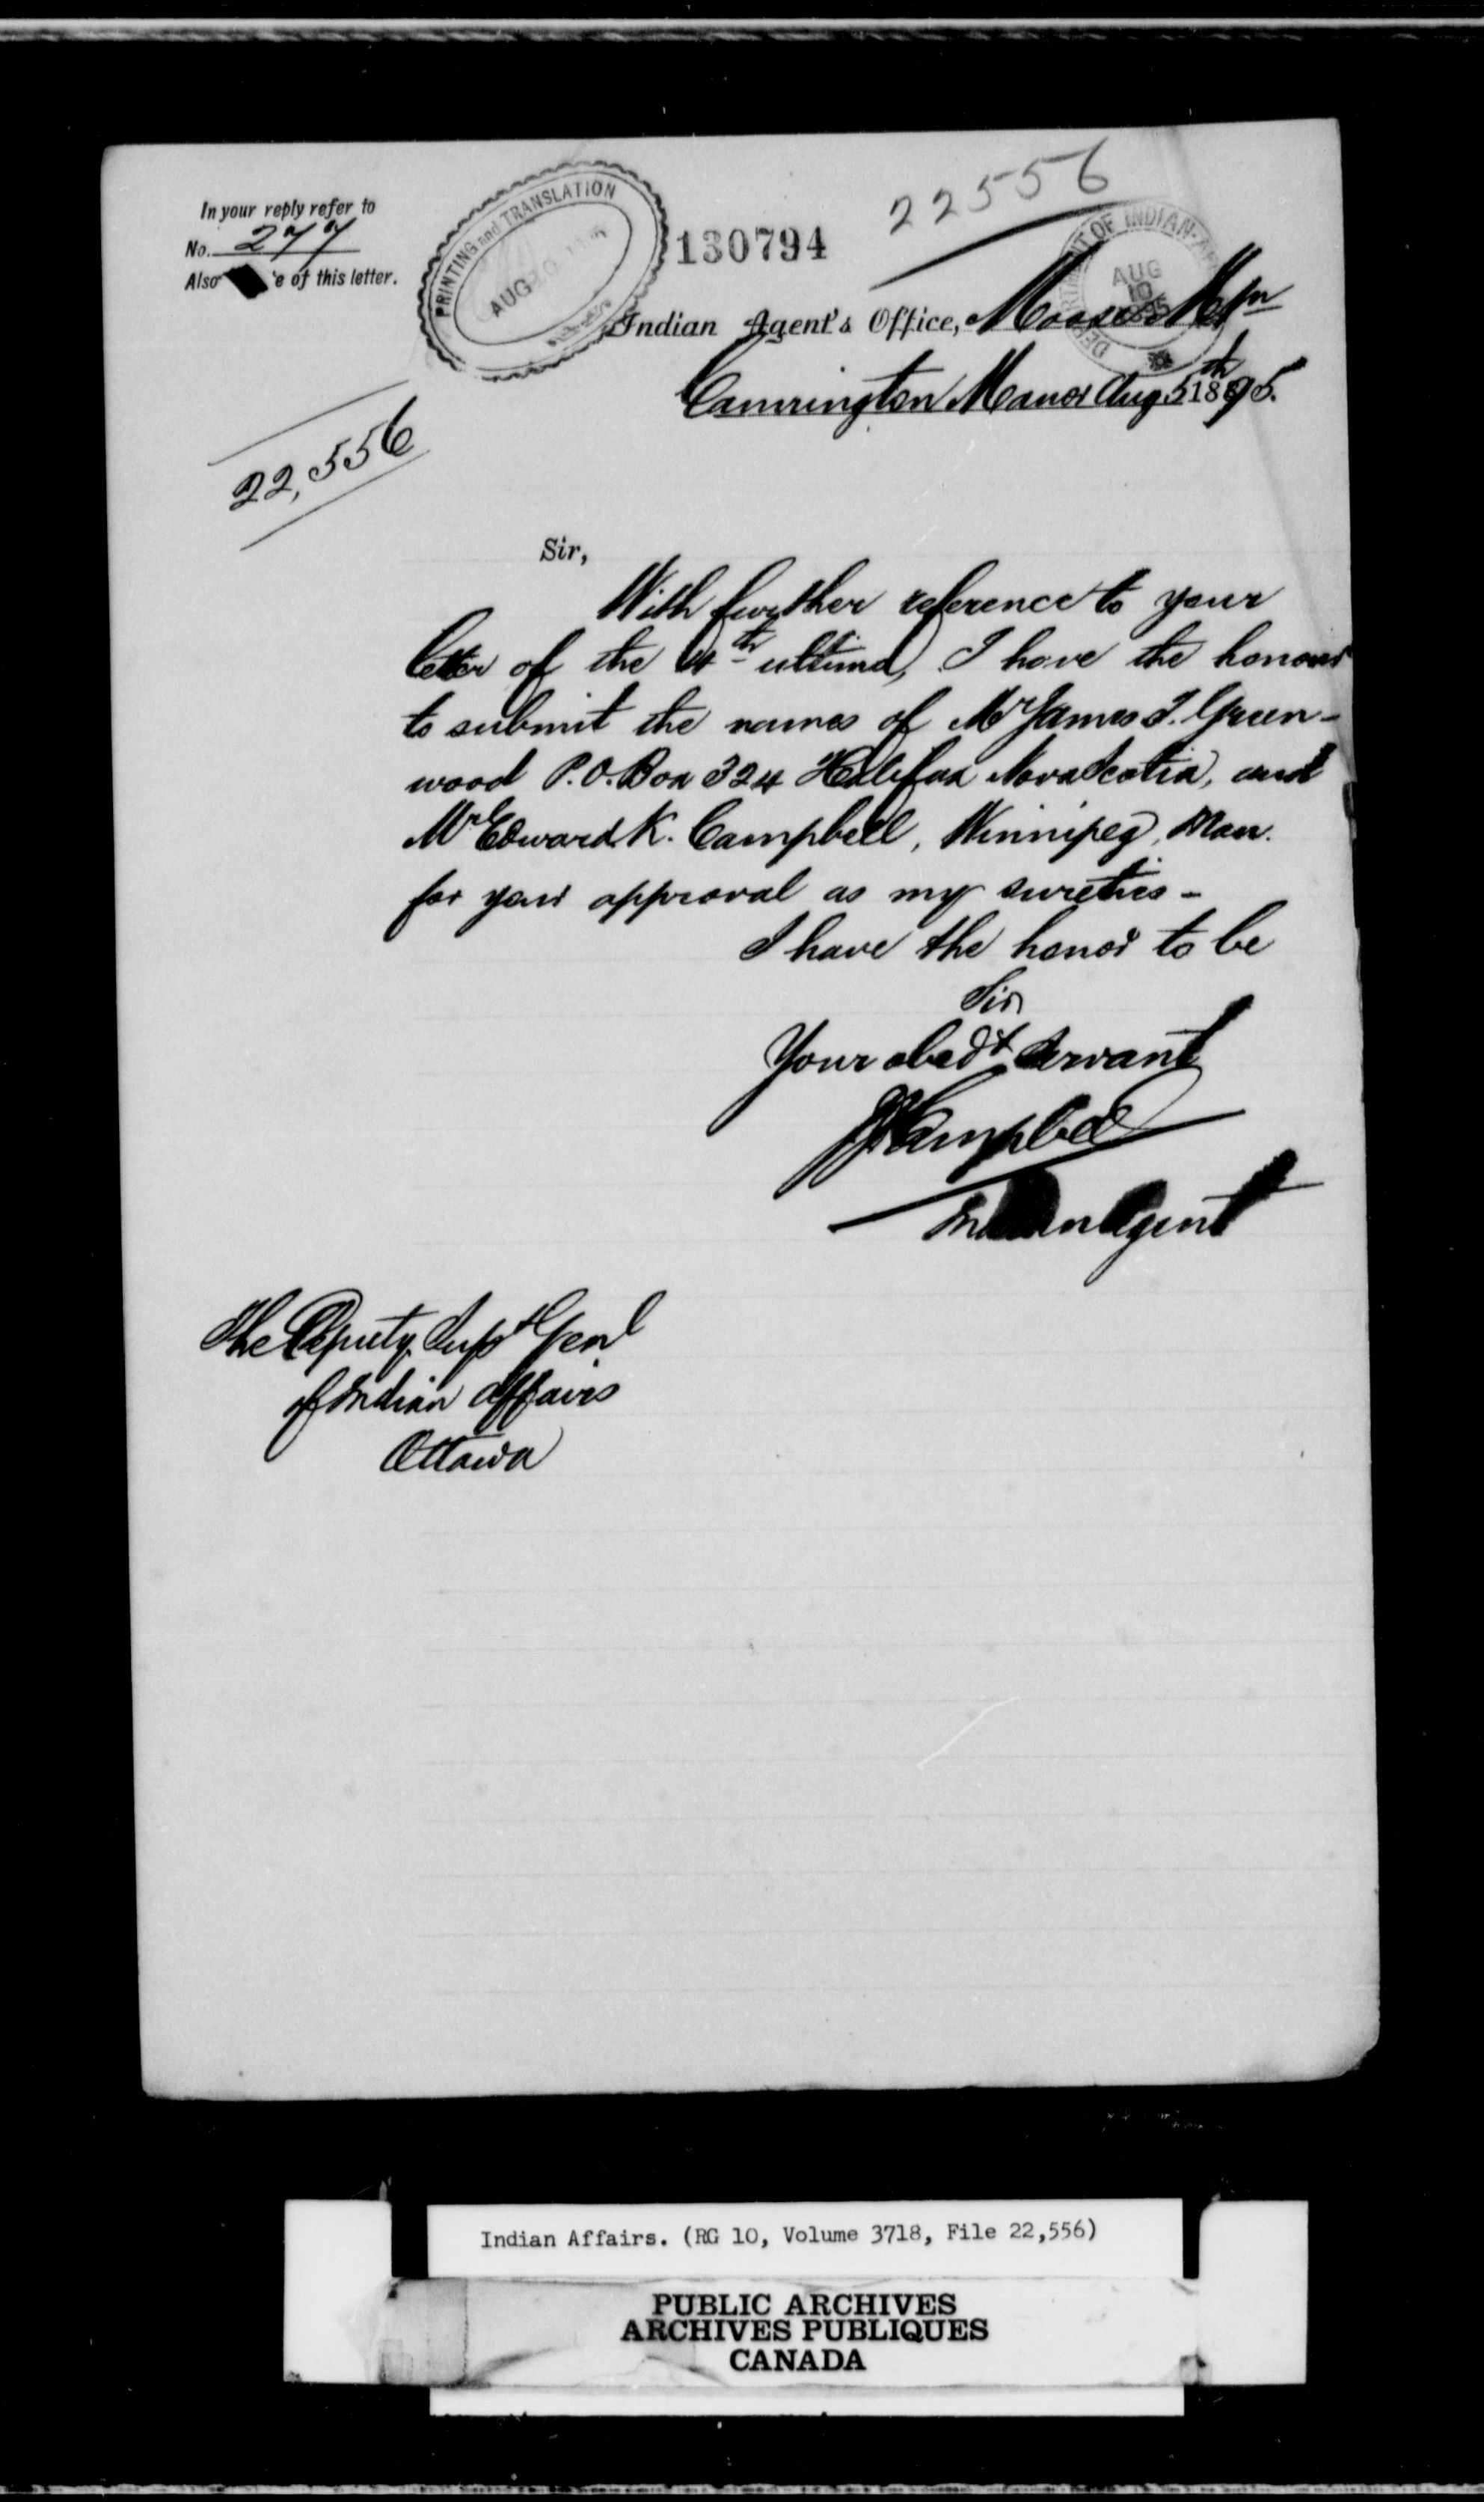 In your reply refer to
No. 277
Also e of this letter.
PRINTING and TRANSLATION
AUG
130794
22556
DEPARTMENT OF INDIAN
AUG
10
Indian Agent's Office, Moose Mtn
Cannington Manor Aug 5th 1895.
22,556
Sir,
With further reference to your
letter of the 4th ultimo, I have the honour
to submit the names of Mr James T. Green-
wood P.O. Box 324 Halifax Nova Scotia, and
Mr Edward K. Campbell, Winnipeg, Man.
for your approval as my sureties -
I have the honor to be
Sir
Your obedt Servant
JJCampbell
Indian Agent
The Deputy Supt Genl
of Indian Affairs
Ottawa
Indian Affairs. (RG 10, Volume 3718, File 22,556)
PUBLIC ARCHIVES
ARCHIVES PUBLIQUES
CANADA